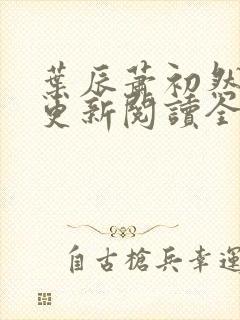 葉辰蕭初然
更新閱讀全
自古槍兵幸運